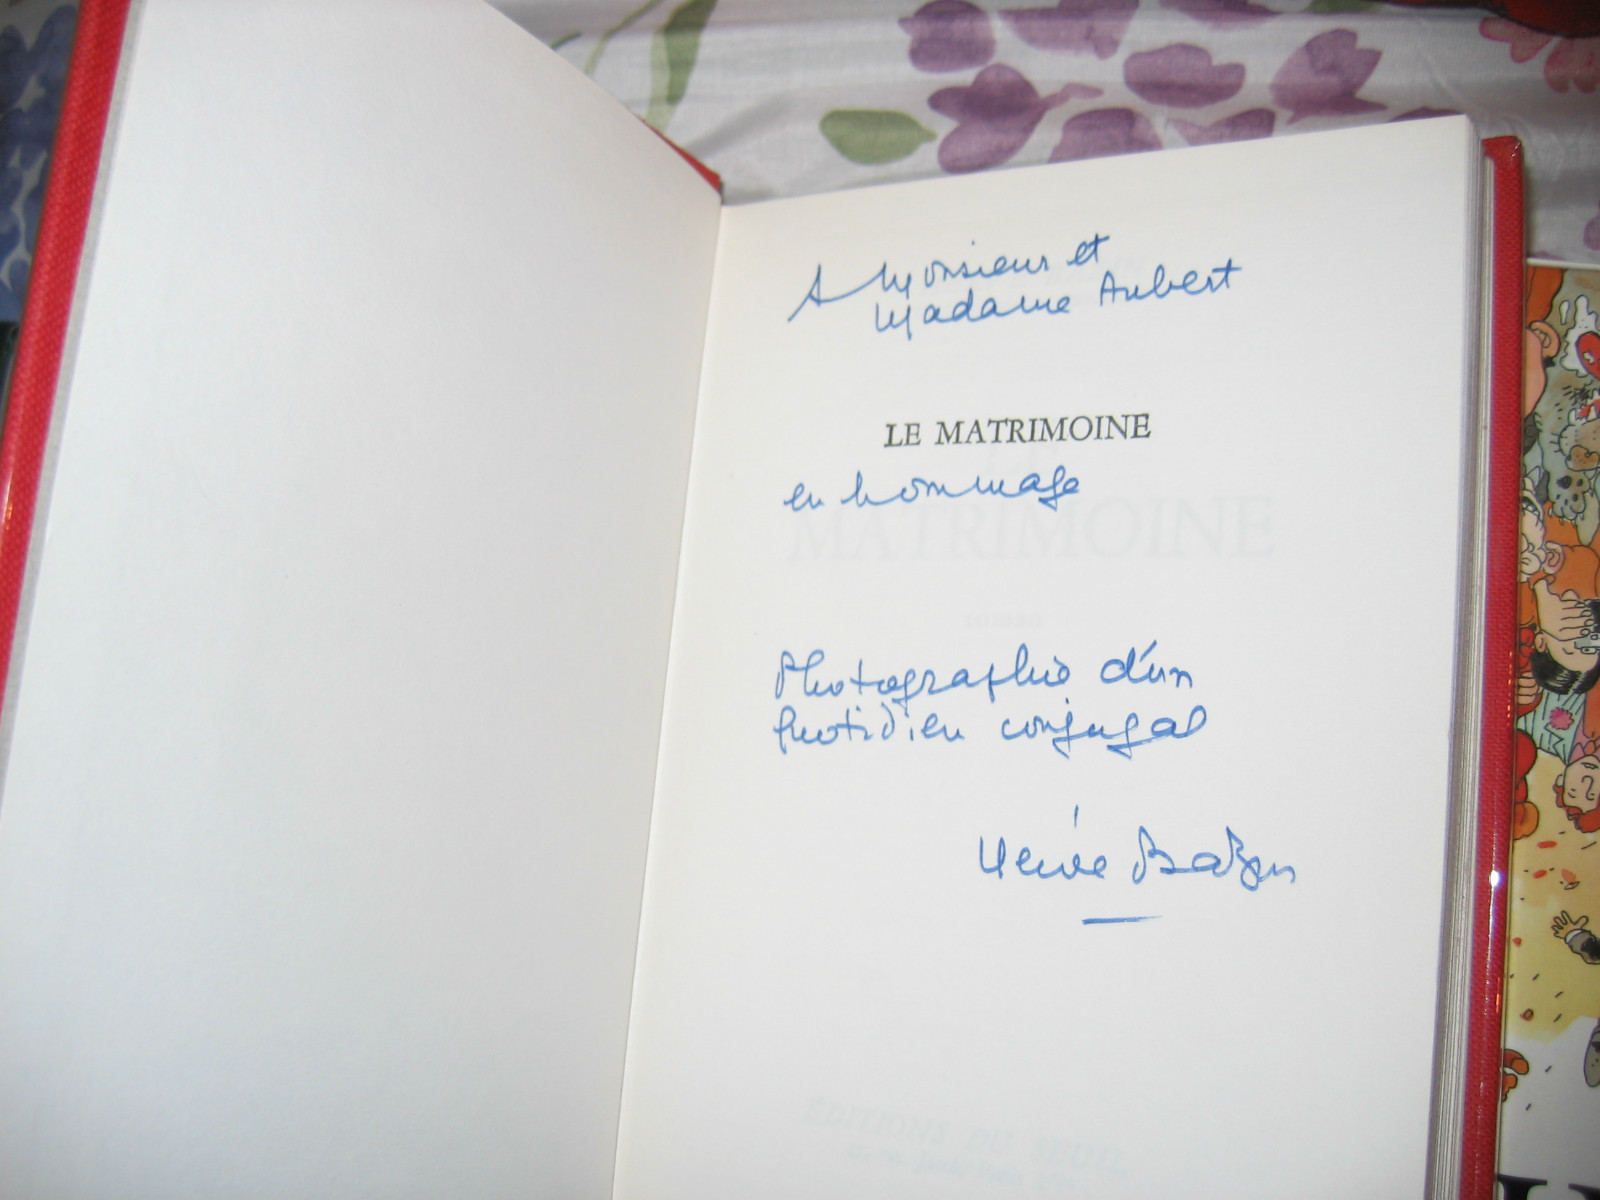 A Monsieur et
Madame Aubert
LE MATRIMOINE
en hommage
MATRIMOINE
Photographie d'un
quotidien conjugal
Hervé Bazin
EDITIONS DU SEUIL